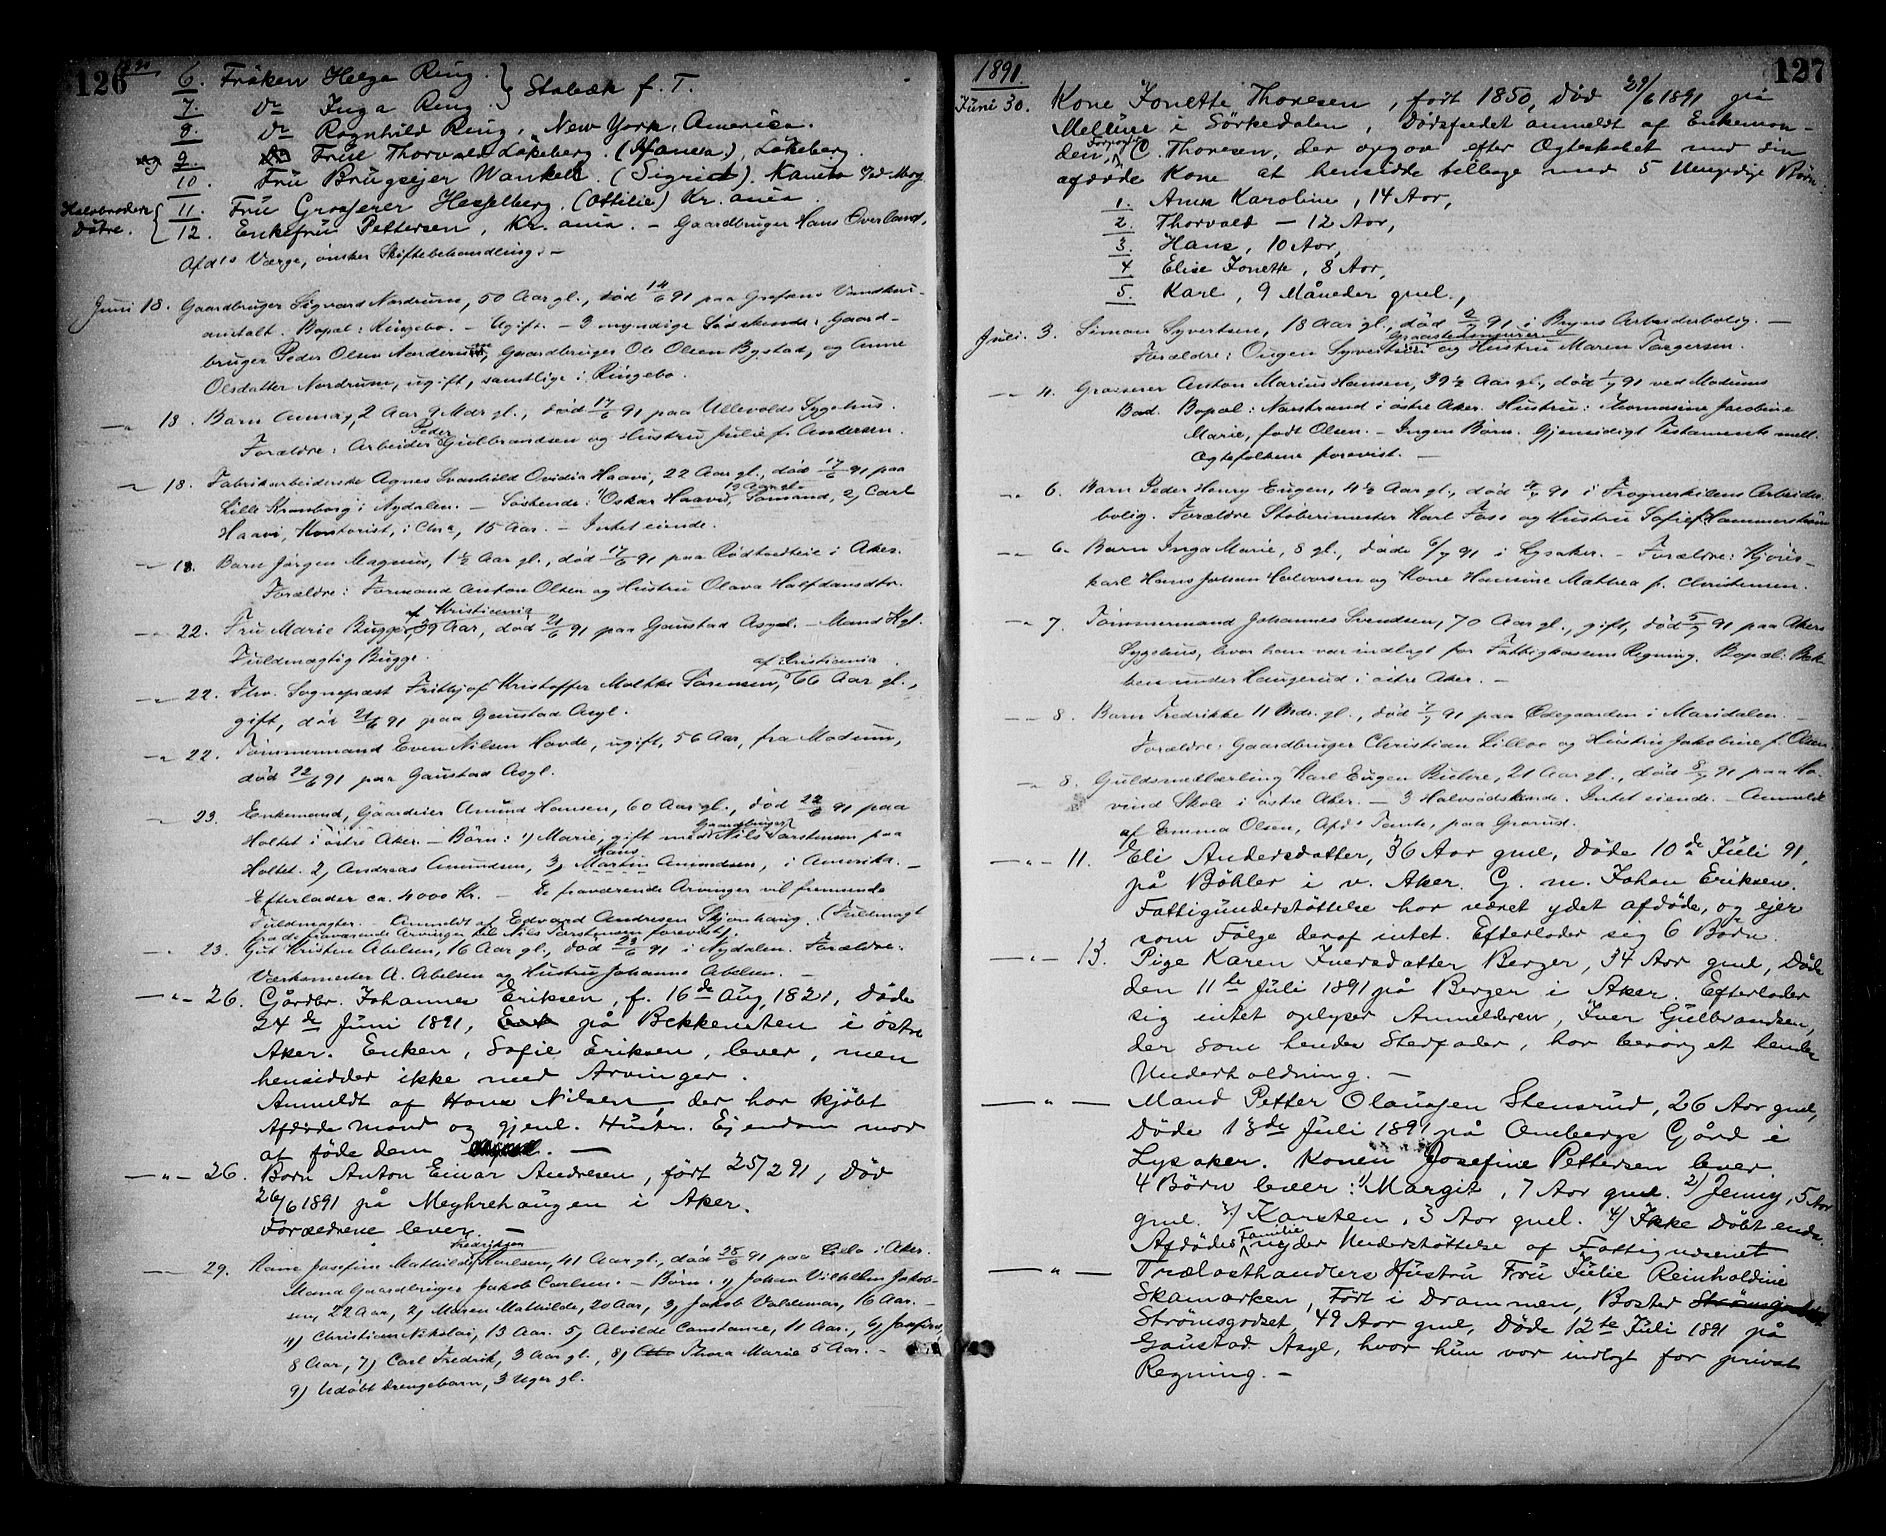 126
6. Fröken Helga Ring. } Stabæk f. T.
7. Do Inga Ring. }
8. Do Ragnhild Ring, New York, America.
9. Frue Thorvald Løkeberg. (Hanna), Løkeberg.
10. Fru Brugsejer Wankel. (Sigrid). Kambo ved Moss.
Halvbroders Døtre. { 11. Fru Grosserer Hesselberg. (Ottilie) Kr.ania.
12. Enkefru Pettersen, Kr.ania. – Gaardbruger Hans Overland,
Afd's Værge, ønsker Skiftebehandling. –
Juni 18. Gaardbruger Sigvard Nordrum, 50 Aar gl., død 14/6 91 paa Grefsens Vandkur-
anstalt. Bopæl: Ringebo. – Ugift. – 3 myndige Sødskende: Gaard-
bruger Peder Olsen Norderum, Gaardbruger Ole Olsen Bystad, og Anne
Olsdatter Nordrum, ugift, samtlige i Ringebo.
–"– 18. Barn Anna, 2 Aar 9 Mdr gl., død 17/6 91 paa Ullevolds Sygehus.
Forældre: Arbeider Peder Gulbrandsen og Hustru Julie f. Andersen.
–"– 18. Fabrikarbeiderske Agnes Svanhild Ovidia Haavi, 22 Aar gl., død 17/6 91 paa
Lille Kronborg i Nydalen. – Søskende: 1) Oskar Haavi, 19 Aar, Sømand, 2) Carl
Haavi, Kontorist, i Chra, 15 Aar. – Intet eiende.
–"– 18. Barn Jørgen Magnus, 1½ Aar gl., død 17/6 91 paa Rødtvedteie i Aker.
Forældre: Formand Anton Olsen og Hustru Olava Halfdansdtr.
–"– 22. Fru Marie Bugge af Kristiania 39 Aar, død 21/6 91 paa Gaustad Asyl. – Mand Kgl.
Fuldmægtig Bugge.
–"– 22. Fhv. Sognepræst Frithjof Kristoffer Moltke Sørensen, af Kristiania 66 Aar gl.,
gift, død 21/6 91 paa Gaustad Asyl.
–"– 22. Tømmermand Even Nilsen Hovde, ugift, 56 Aar, fra Modum,
død 22/6 91 paa Gaustad Asyl.
–"– 23. Enkemand, Gaardeier Amund Hansen, 60 Aar gl., død 22/6 91 paa
Holtet i østre Aker. – Børn: 1) Marie, gift med Gaardbruger Nils Torstensen paa
Holtet. 2) Andreas Amundsen, 3) Hans Martin Amundsen, i Amerika. –
Efterlader ca. 4000 Kr. – De fraværende Arvinger vil fremsende
Fuldmagter. Anmeldt af Edvard Andresen Skjønhaug. (Fuldmagt
fra de fraværende Arvinger til Nils Torstensen forevist).
–"– 23. Gut Kristen Abelsen, 16 Aar gl., død 23/6 91 i Nydalen. Forældre:
Værksmester A. Abelsen og Hustru Johanne Abelsen. –
–"– 26. Gårdbr. Johannes Eriksen, f. 16de Aug, 1821, Døde
24de Juni 1891, på Bekkensten i østre
Aker. Enken, Sofie Eriksen, lever, men
hensidder ikke med Arvinger.
Anmeldt af Hans Nilsen, der har kjöbt
Afdøde mand og gjenl. Hustr. Ejendom mod
at føde dem. –
–"– 26. Barn Anton Einar Andresen, født 25/2 91, Død
26/6 1891 på Meghrehaugen i Aker.
Forældrene lever. –
–"– 29. Kone Josefine Mathilde Fredriksen Karlsen, 41 Aar gl., død 28/6 91 paa Lilo i Aker.
Mand Gaardbruger Jakob Carlsen. – Børn: 1) Johan Vilhelm Jakob-
sen, 22 Aar, 2) Maren Mathilde, 20 Aar, 3) Jakob Valdemar, 16 Aar. –
4) Christian Nikolai, 13 Aar. 5) Alvilde Constance, 11 Aar., 6) Josefine,
8 Aar, 7) Carl Fredrik, 3 Aar gl., 8) Thora Marie 5 Aar. –
9) Udøbt Drengebarn, 3 Uger gl.
1891.
127
Juni 30. Kone Jonette Thoresen, født 1850, død 29/6 1891 på
i Sørkedalen, Dødsfaldet anmeldt af Enkeman-
den, C. Thoresen, der opgav efter Ægteskabet med sin
afdøde Kone at hensidde tilbage med 5 Umyndige Børn:
1. Anne Karoline, 14 Aar,
2. Thorvald – 12 Aar,
3. Hans, 10 Aar,
4 Elise Jonette, 8 Aar,
5. Karl, 9 Måneder gml.,
Juli. 3. Simon Syvertsen, 18 Aar gl., død 2/7 91 i Bryns Arbeiderbolig. –
Forældre: Ougen Syvertsen og Hustru Maren Torgersen.
–"– 4. Grosserer Anton Marius Hansen, 39½ Aar gl., død 1/7 91 ved Modums
Bad. Bopæl: Norstrand i østre Aker. Hustru: Thomasine Jacobine
Marie, født Olsen. – Ingen Børn. Gjensidigt Testamente mell.
Ægtefolkene forevist. –
–"– 6. Barn Peder Henry Eugen, 4½ Aar gl., død 4/7 91 i Frognerkilens Arbeider-
bolig. Forældre Støberimester Karl Foss og Hustru Sofie f. Hammerstrøm
–"– 6. Barn Inga Marie, 8 gl., døde 6/7 91 i Lysaker. – Forældre: Kjøre-
karl Hans Johan Halvorsen og Kone Hansine Mathea f. Christensen.
–"– 7. Tømmermand Johannes Svendsen, 70 Aar gl., gift, død 5/7 91 paa Akers
Sygehus, hvor han var indlagt for Fattigkassens Regning. Bopæl: Bak-
ken under Haugerud i østre Aker. –
–"– 8. Barn Fredrikke 11 Mdr. gl., død 7/7 91 paa Ødegaarden i Maridalen. –
Forældre: Gaardbruger Christian Lilloe og Hustru Jakobine f. Olsen
–"– 8. Guldsmedlærling Karl Eugen, 21 Aar gl., død 8/7 91 paa Ho-
vind Skole i østre Aker. – 3 Halvsødskende. Intet eiende. – Anmeldt
af Emma Olsen, Afd's Tante, paa Grorud.
–"– 11. Eli Andersdatter, 36 Aar gml, Døde 10de Juli 91,
på Bøhler i v. Aker. G. m. Johan Eriksen.
Fattigunderstøttelse har været ydet afdøde, og ejer
som Følge deraf intet. Efterlader sig 6 Børn.
–"– 13. Pige Karen Iversdatter Berger, 34 Aar gml, Døde
den 11te Juli 1891 på Berger i Aker. Efterlader
sig intet oplyser Anmelderen, Iver Gulbrandsen,
der som hendes Stepfader, har besørget hendes
Underholdning. –
–"– Mand Petter Olausen Stensrud, 26 Aar gml,
Døde 13de Juli 1891 på Gård i
Lysaker. Konen Josefine Pettersen lever
4 Børn lever: 1) Margit, 7 Aar gml. 2) Jenny, 5 Aar
gml. 3) Karsten, 3 Aar gml. 4) Ikke Døbt endn.
Afdødes Familie nyder Understøttelse af Fattigvæsenet
–"– Trælasthandlers Hustru Fru Julie Reinholdine
Skamarken, Født i Drammen, Bosted
Strømsgodset, 49 Aar gml, Døde 12te Juli 1891 på
Gaustad Asyl, hvor hun var indlagt for privat
Regning. –